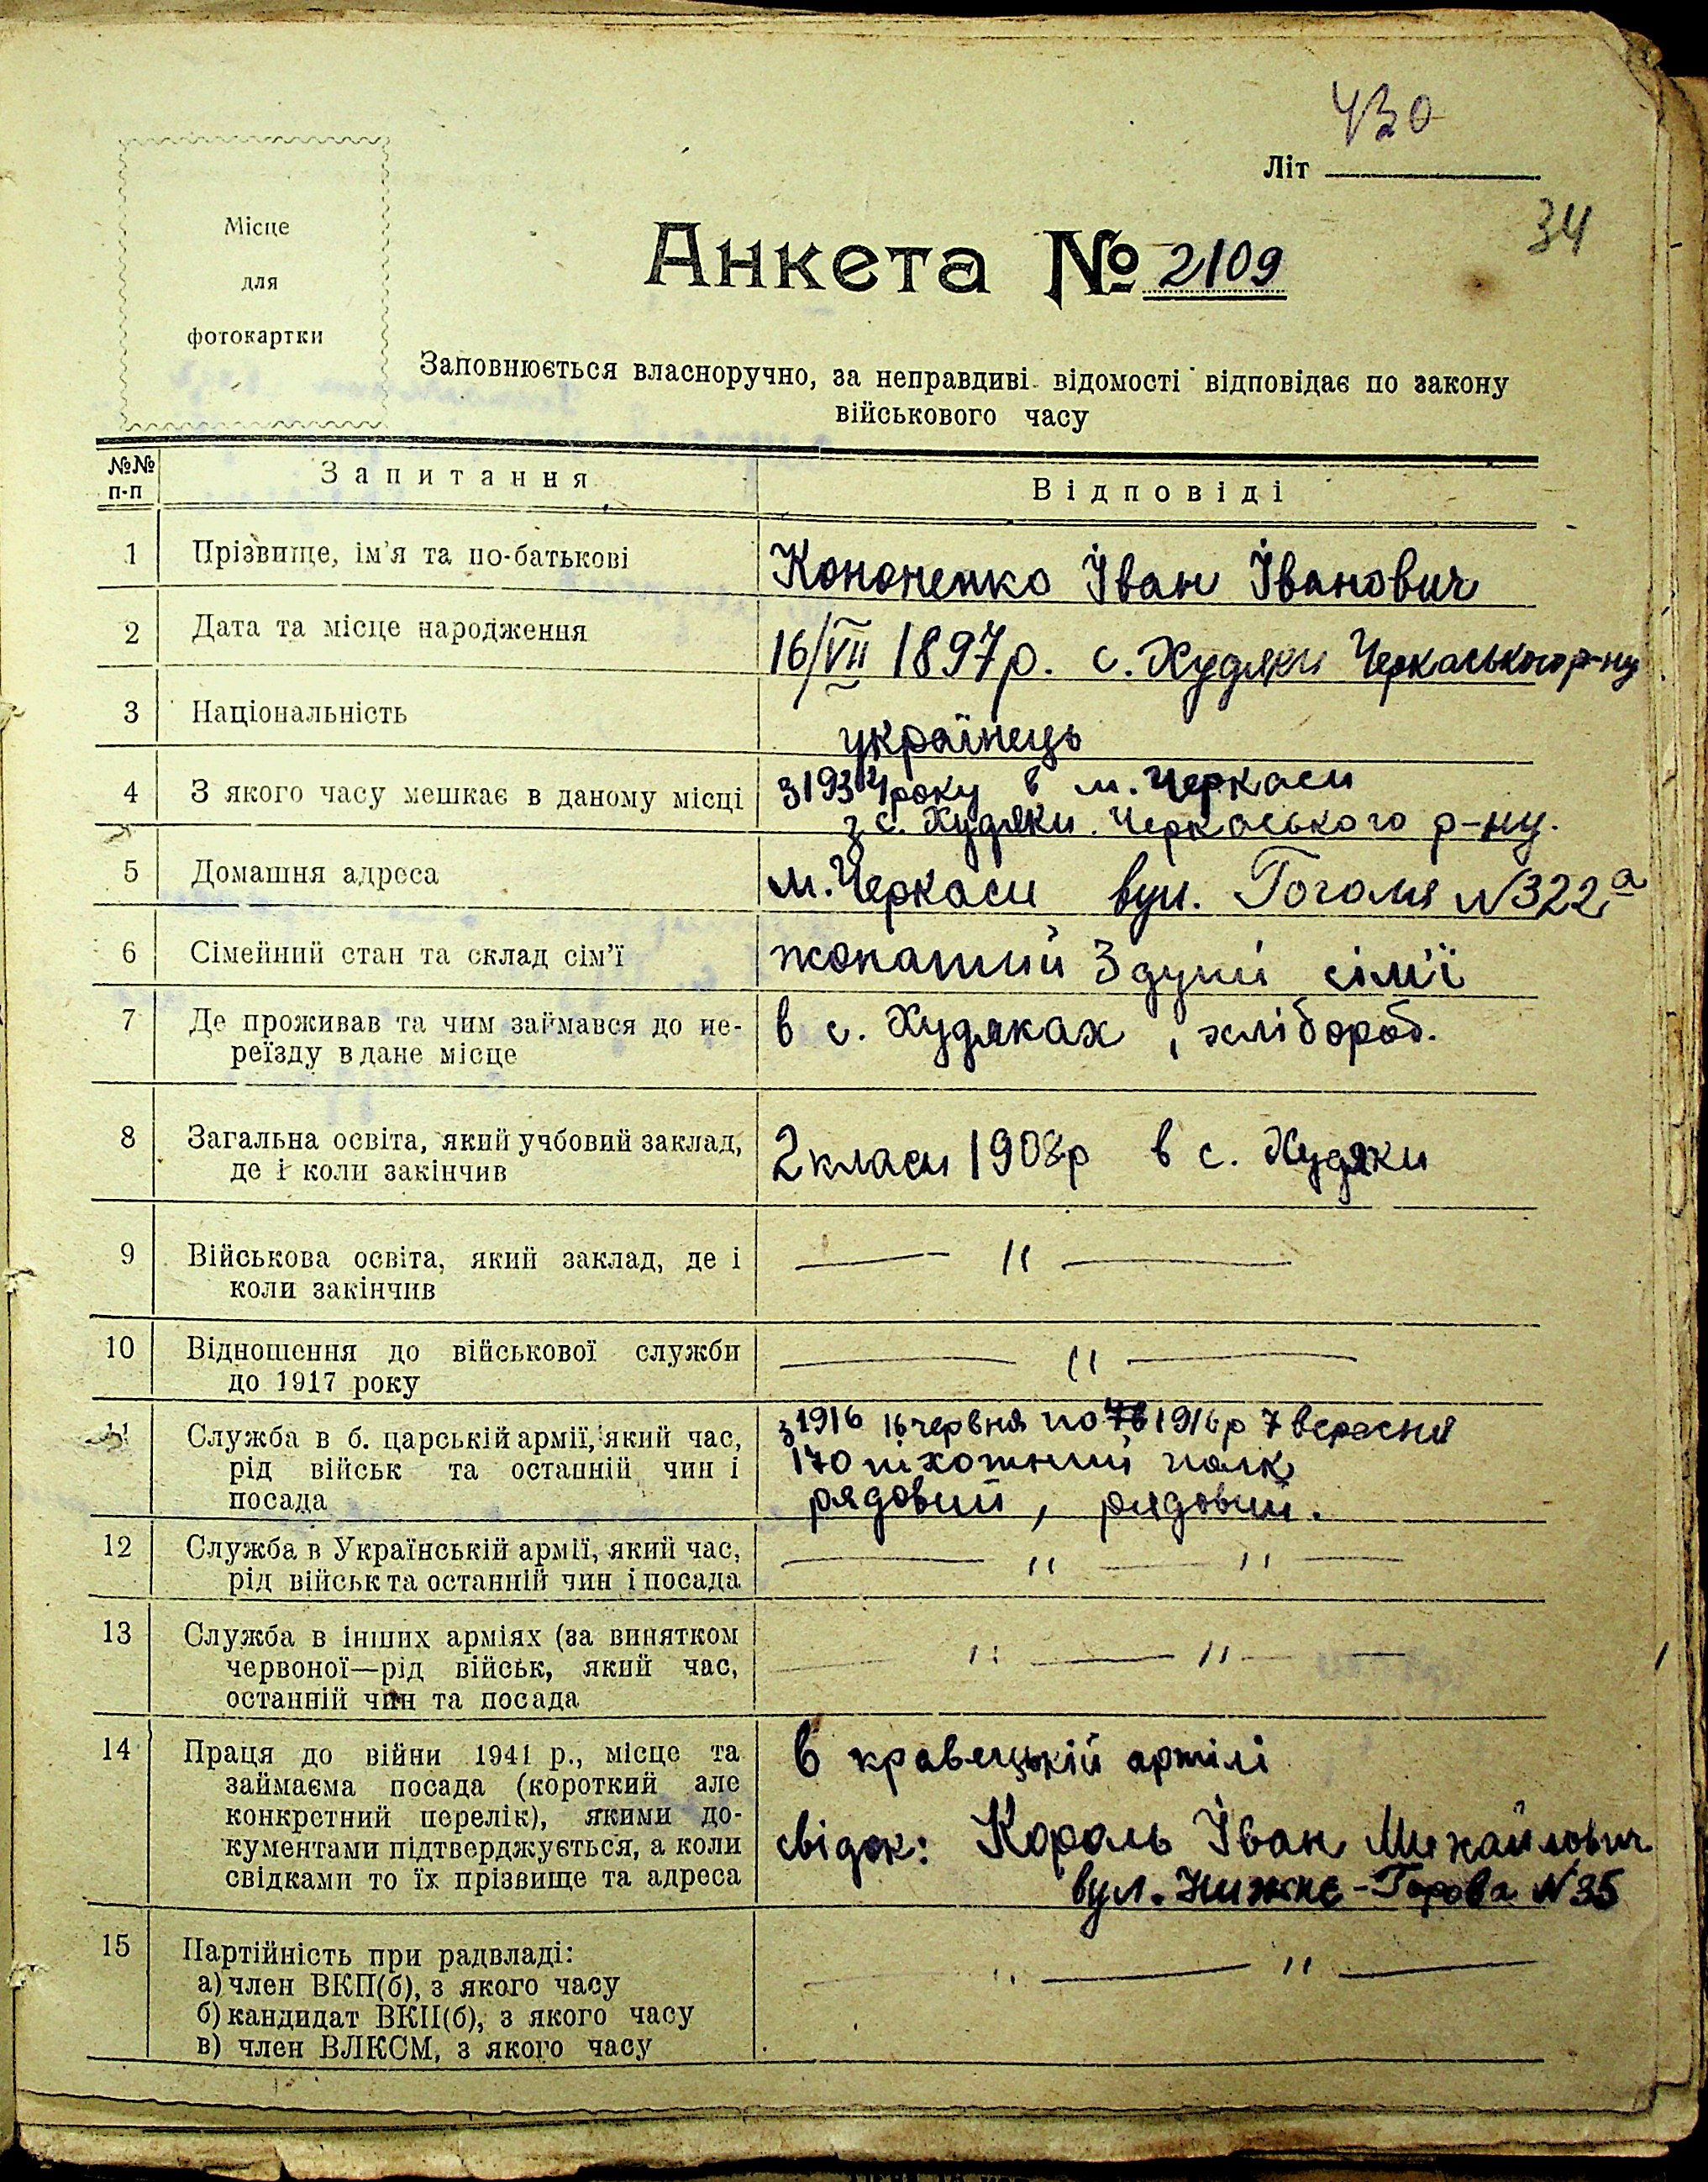 430
Літ
34
Місце
для
фотокартки
Анкета № 2109
Заповнюється власноручно, за неправдиві відомості відповідає по закону
військового часу
№№ п-п
Запитання
Відповіді
1
Прізвище, ім'я та по-батькові
Кононенко Іван Іванович
2
Дата та місце народження
16/VII 1897р. с. Худяки Черкаського р-ну
3
Національність
українець
4
З якого часу мешкає в даному місці
з 1934 року в м. Черкаси
з с. Худяки Черкаського р-ну.
5
Домашня адреса
м. Черкаси вул. Гоголя №322а
6
Сімейний стан та склад сім'ї
жонатий 3 душі сім'ї
7
Де проживав та чим займався до пе-
реїзду в дане місце
в с. Худяках, хлібороб.
8
Загальна освіта, який учбовий заклад,
де і коли закінчив
2 класи 1908р в с. Худяки
9
Військова освіта, який заклад, де і
коли закінчив
— // —
10
Відношення до військової служби
до 1917 року
— // —
11
Служба в б. царській армії, який час,
рід військ та останній чин і
посада
з 1916 16 червня по 1916р 7 вересня
170 піхотний полк
рядовий, рядовий.
12
Служба в Українській армії, який час,
рід військ та останній чин і посада
— // — // —
13
Служба в інших арміях (за винятком
червоної—рід військ, який час,
останній чин та посада
— // — // —
14
Праця до війни 1941 р., місце та
займаєма посада (короткий але
конкретний перелік), якими до-
кументами підтверджується, а коли
свідками то їх прізвище та адреса
в кравецькій артілі
свідок: Король Іван Михайлович
вул. Нижнє-Горова №35
15
Партійність при радвладі:
а) член ВКП(б), з якого часу
б) кандидат ВКП(б), з якого часу
в) член ВЛКСМ, з якого часу
— // — // —